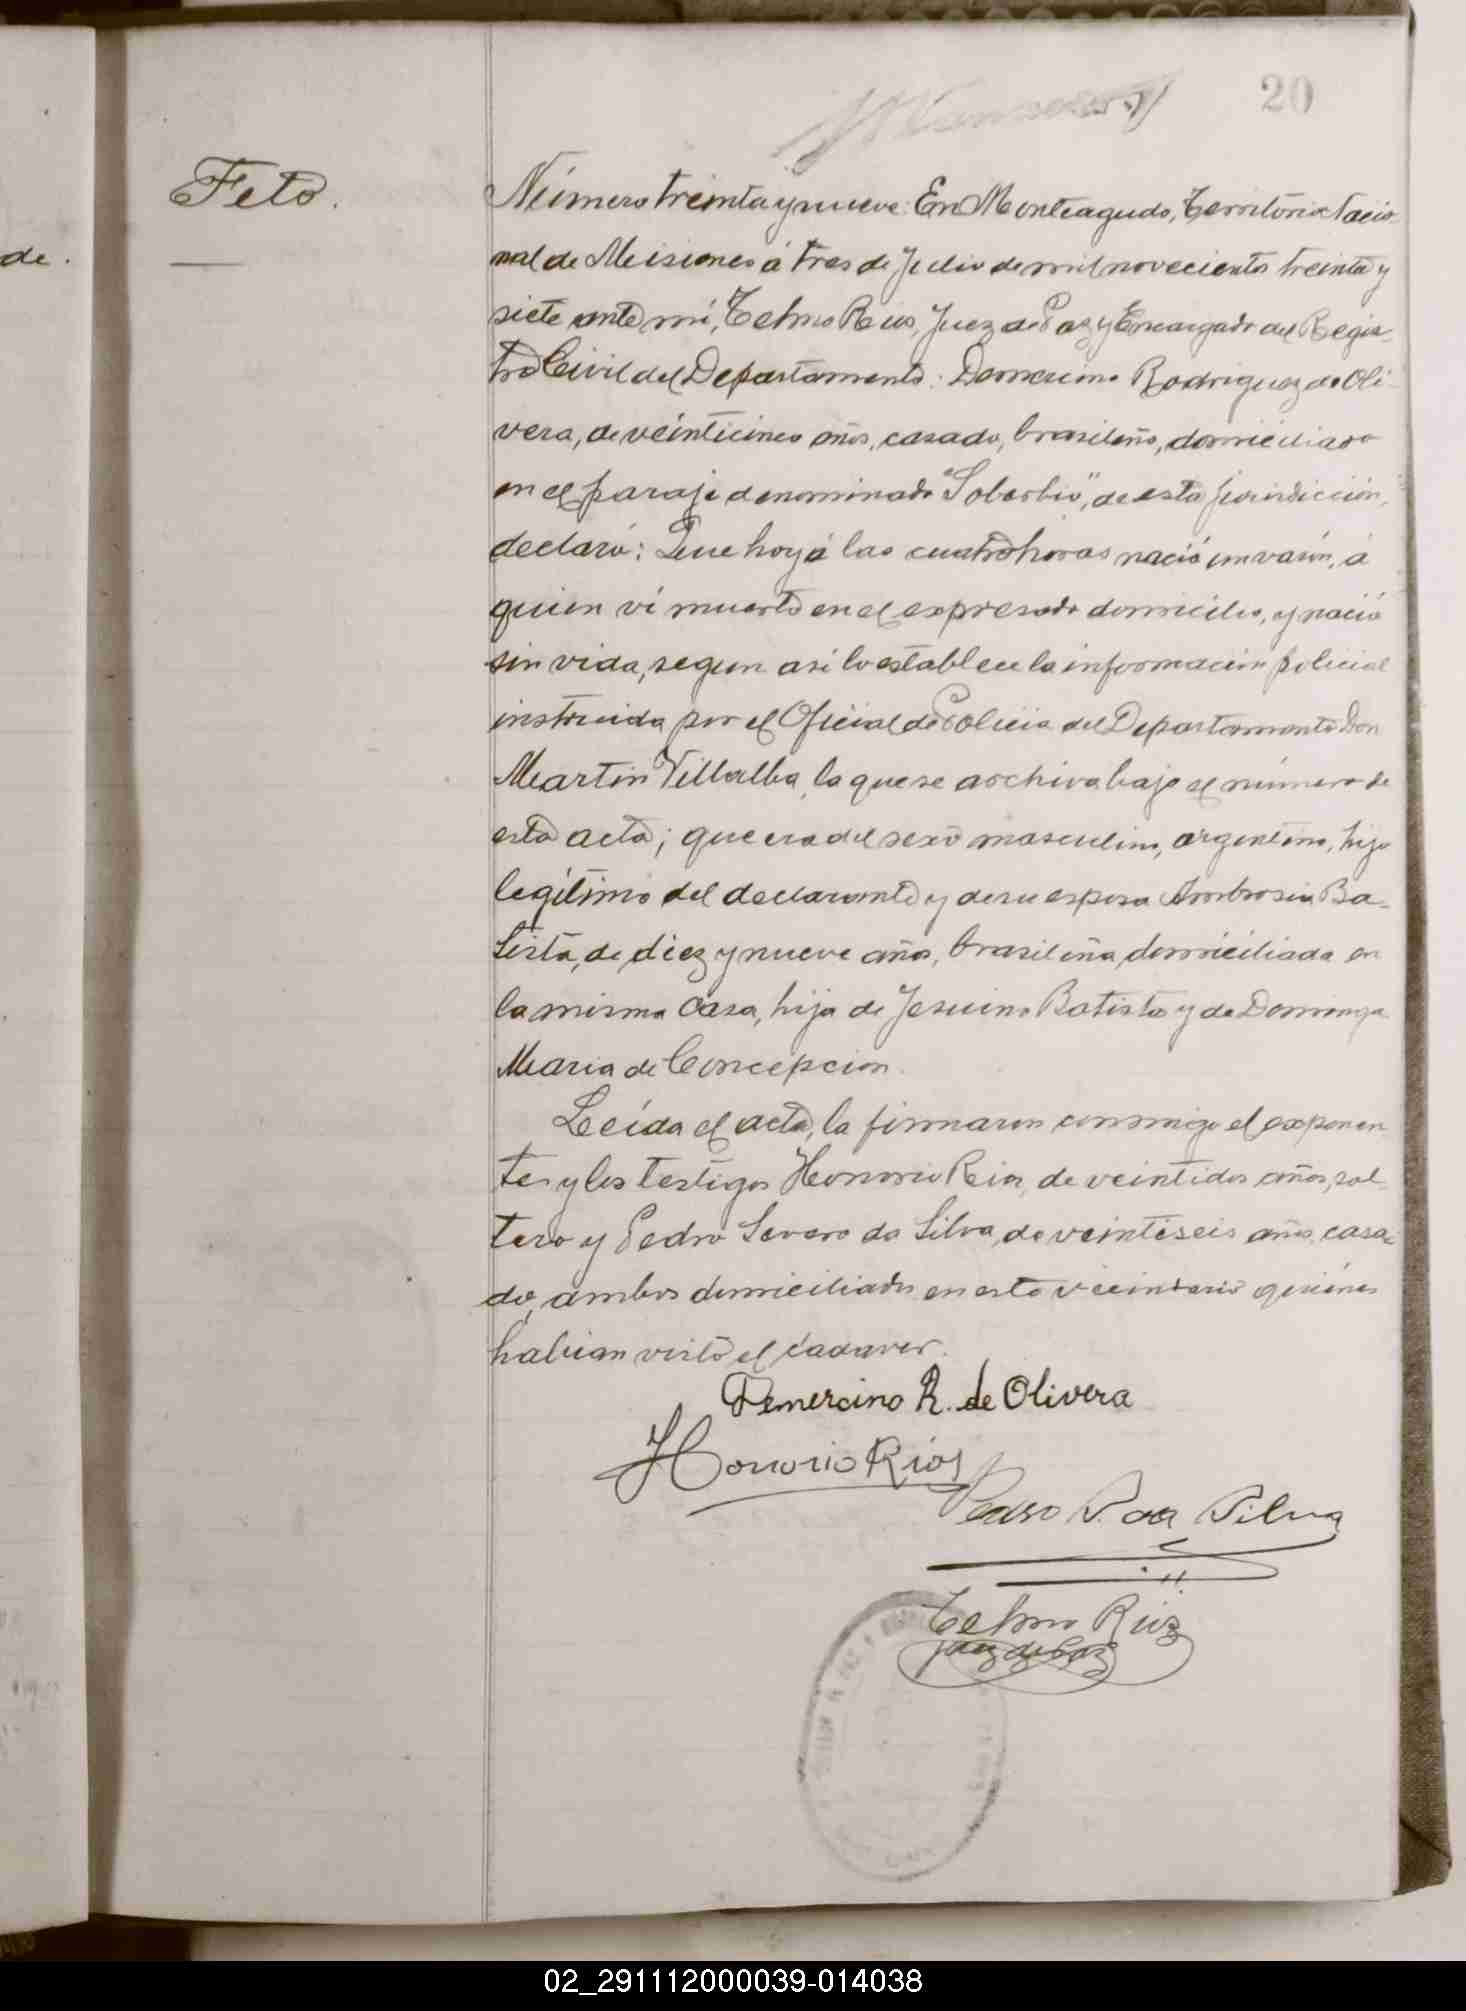 20
Feto.
de.
Número treinta y nueve: En Monteagudo, Territorio Nacio-
nal de Misiones á tres de Julio de mil novecientos treinta y
siete ante mí, Telmo Ruiz, Juez de Paz y Encargado del Regis-
tro Civil del Departamento: Demercino Rodriguez de Oli-
vera, de veinticinco años, casado, brasileño, domiciliado
en el paraje denominado "Soberbio", de esta jurisdicción,
declaró: Que hoy á las cuatro horas nació un varón, á
quien ví muerto en el expresado domicilio, y nació
sin vida, segun así lo establece la información policial
instruida por el Oficial de Policia del Departamento Don
Martin Villalba, la que se archiva bajo el número de
esta acta; que era del sexo masculino, argentino, hijo
legítimo del declarante y de su esposa Ambrosia Ba-
tista, de diez y nueve años, brasileña, domiciliada en
la misma casa, hija de Jesuino Batista y de Dominga
Maria de Concepcion.
Leída el acta, la firmaron conmigo el exponen-
te y los testigos Honorio Rios, de veintidos años, sol-
tero y Pedro Severo da Silva, de veintiseis años, casa-
do, ambos domiciliados en este vecindario quiénes
habían visto el cadaver.
Demercino R. de Olivera
Honorio Ríos
Pedro S. da Silva
Telmo Ruiz
Juez de Paz
02_291112000039-014038